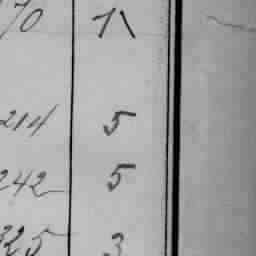 70 11
214 5
242 5
325 3